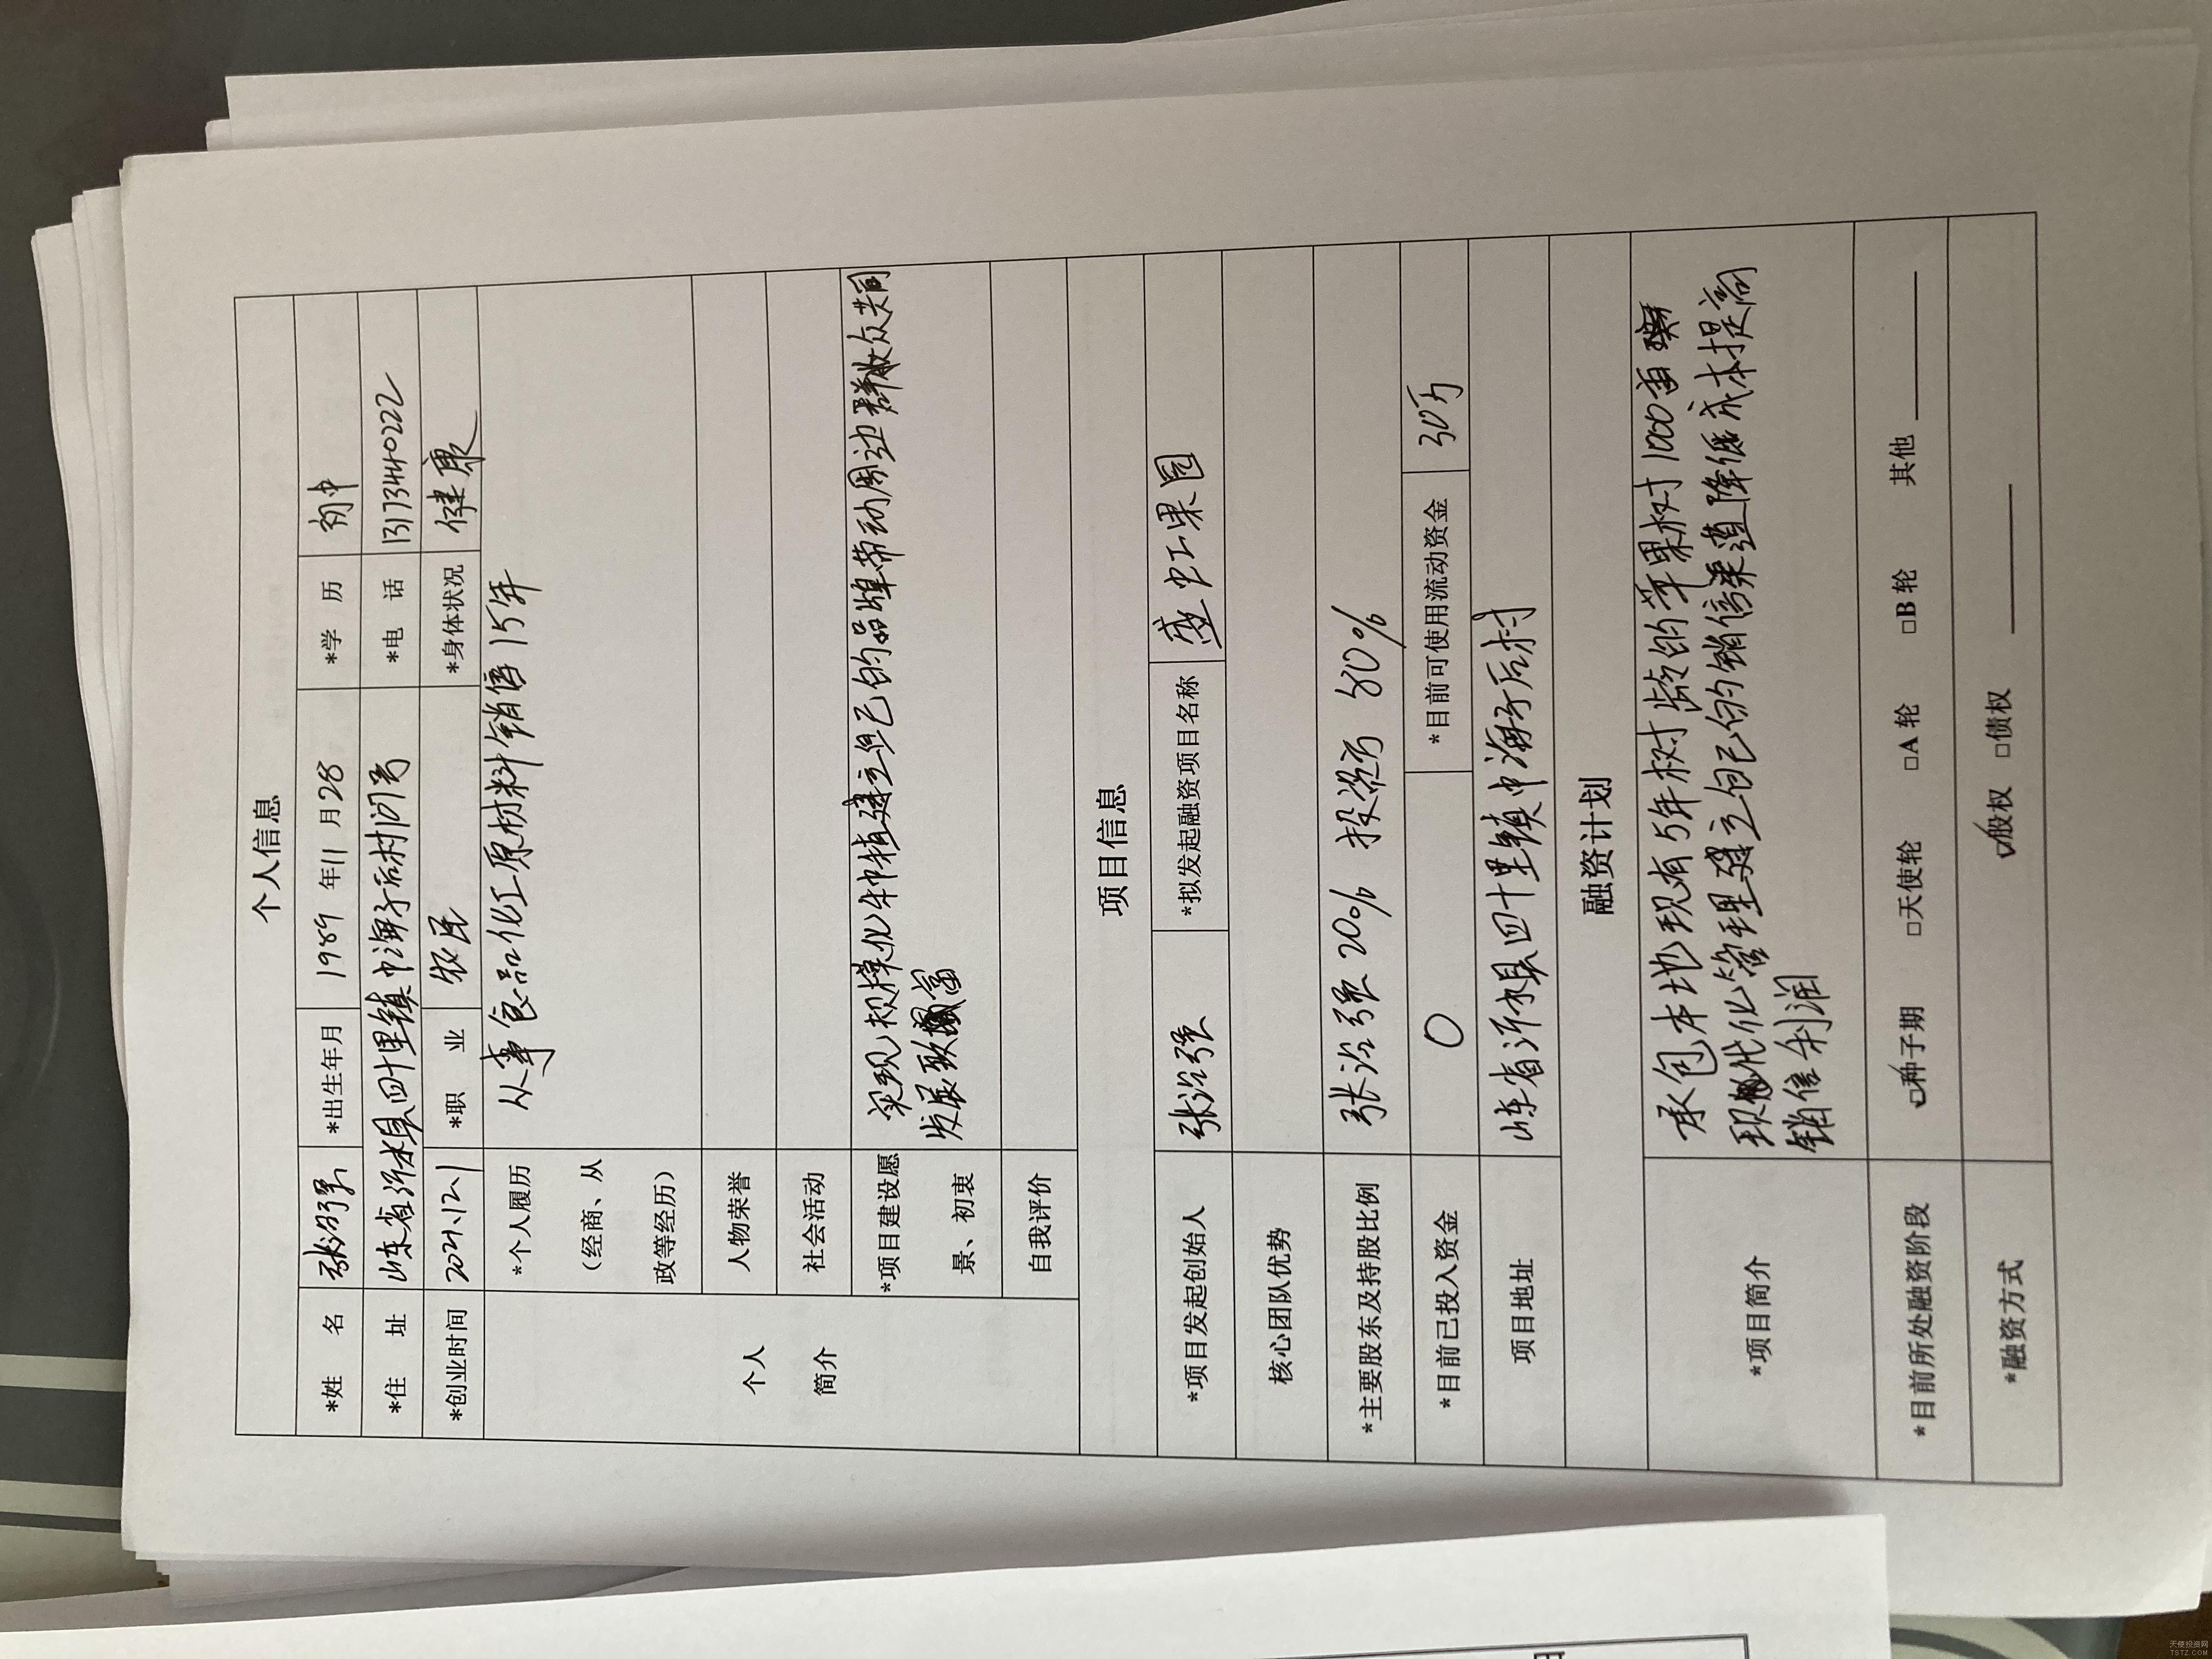 个人信息
*姓 名 张治强 *出生年月 1989年11月28 *学 历 初中
*住 址 山东省沂水县四十里镇中海子后村门号 *电 话 13173440222
*创业时间 2021.12.1 *职 业 农民 *身体状况 健康
个人
简介
*个人履历
(经商、从
政等经历)
从事食品化工原材料销售15年
人物荣誉
社会活动
*项目建设愿
景、初衷
实现规模化生中植建立自己的品牌带动周边群众共同
发展致富
自我评价
项目信息
*项目发起创始人 张治强 *拟发起融资项目名称 果园
核心团队优势
*主要股东及持股比例 张治强 20% 投资方 80%
*目前已投入资金 0 *目前可使用流动资金 30万
项目地址 山东省沂水县四十里镇中海子后村
融资计划
*项目简介
承包本地现有5年树龄的苹果树1000亩
现代化管理建立自己的销售渠道降低成本提高
销售利润
*目前所处融资阶段 ☑种子期 □天使轮 □A轮 □B轮 其他
*融资方式 ☑股权 □债权
天使投资网
TSTZ.COM